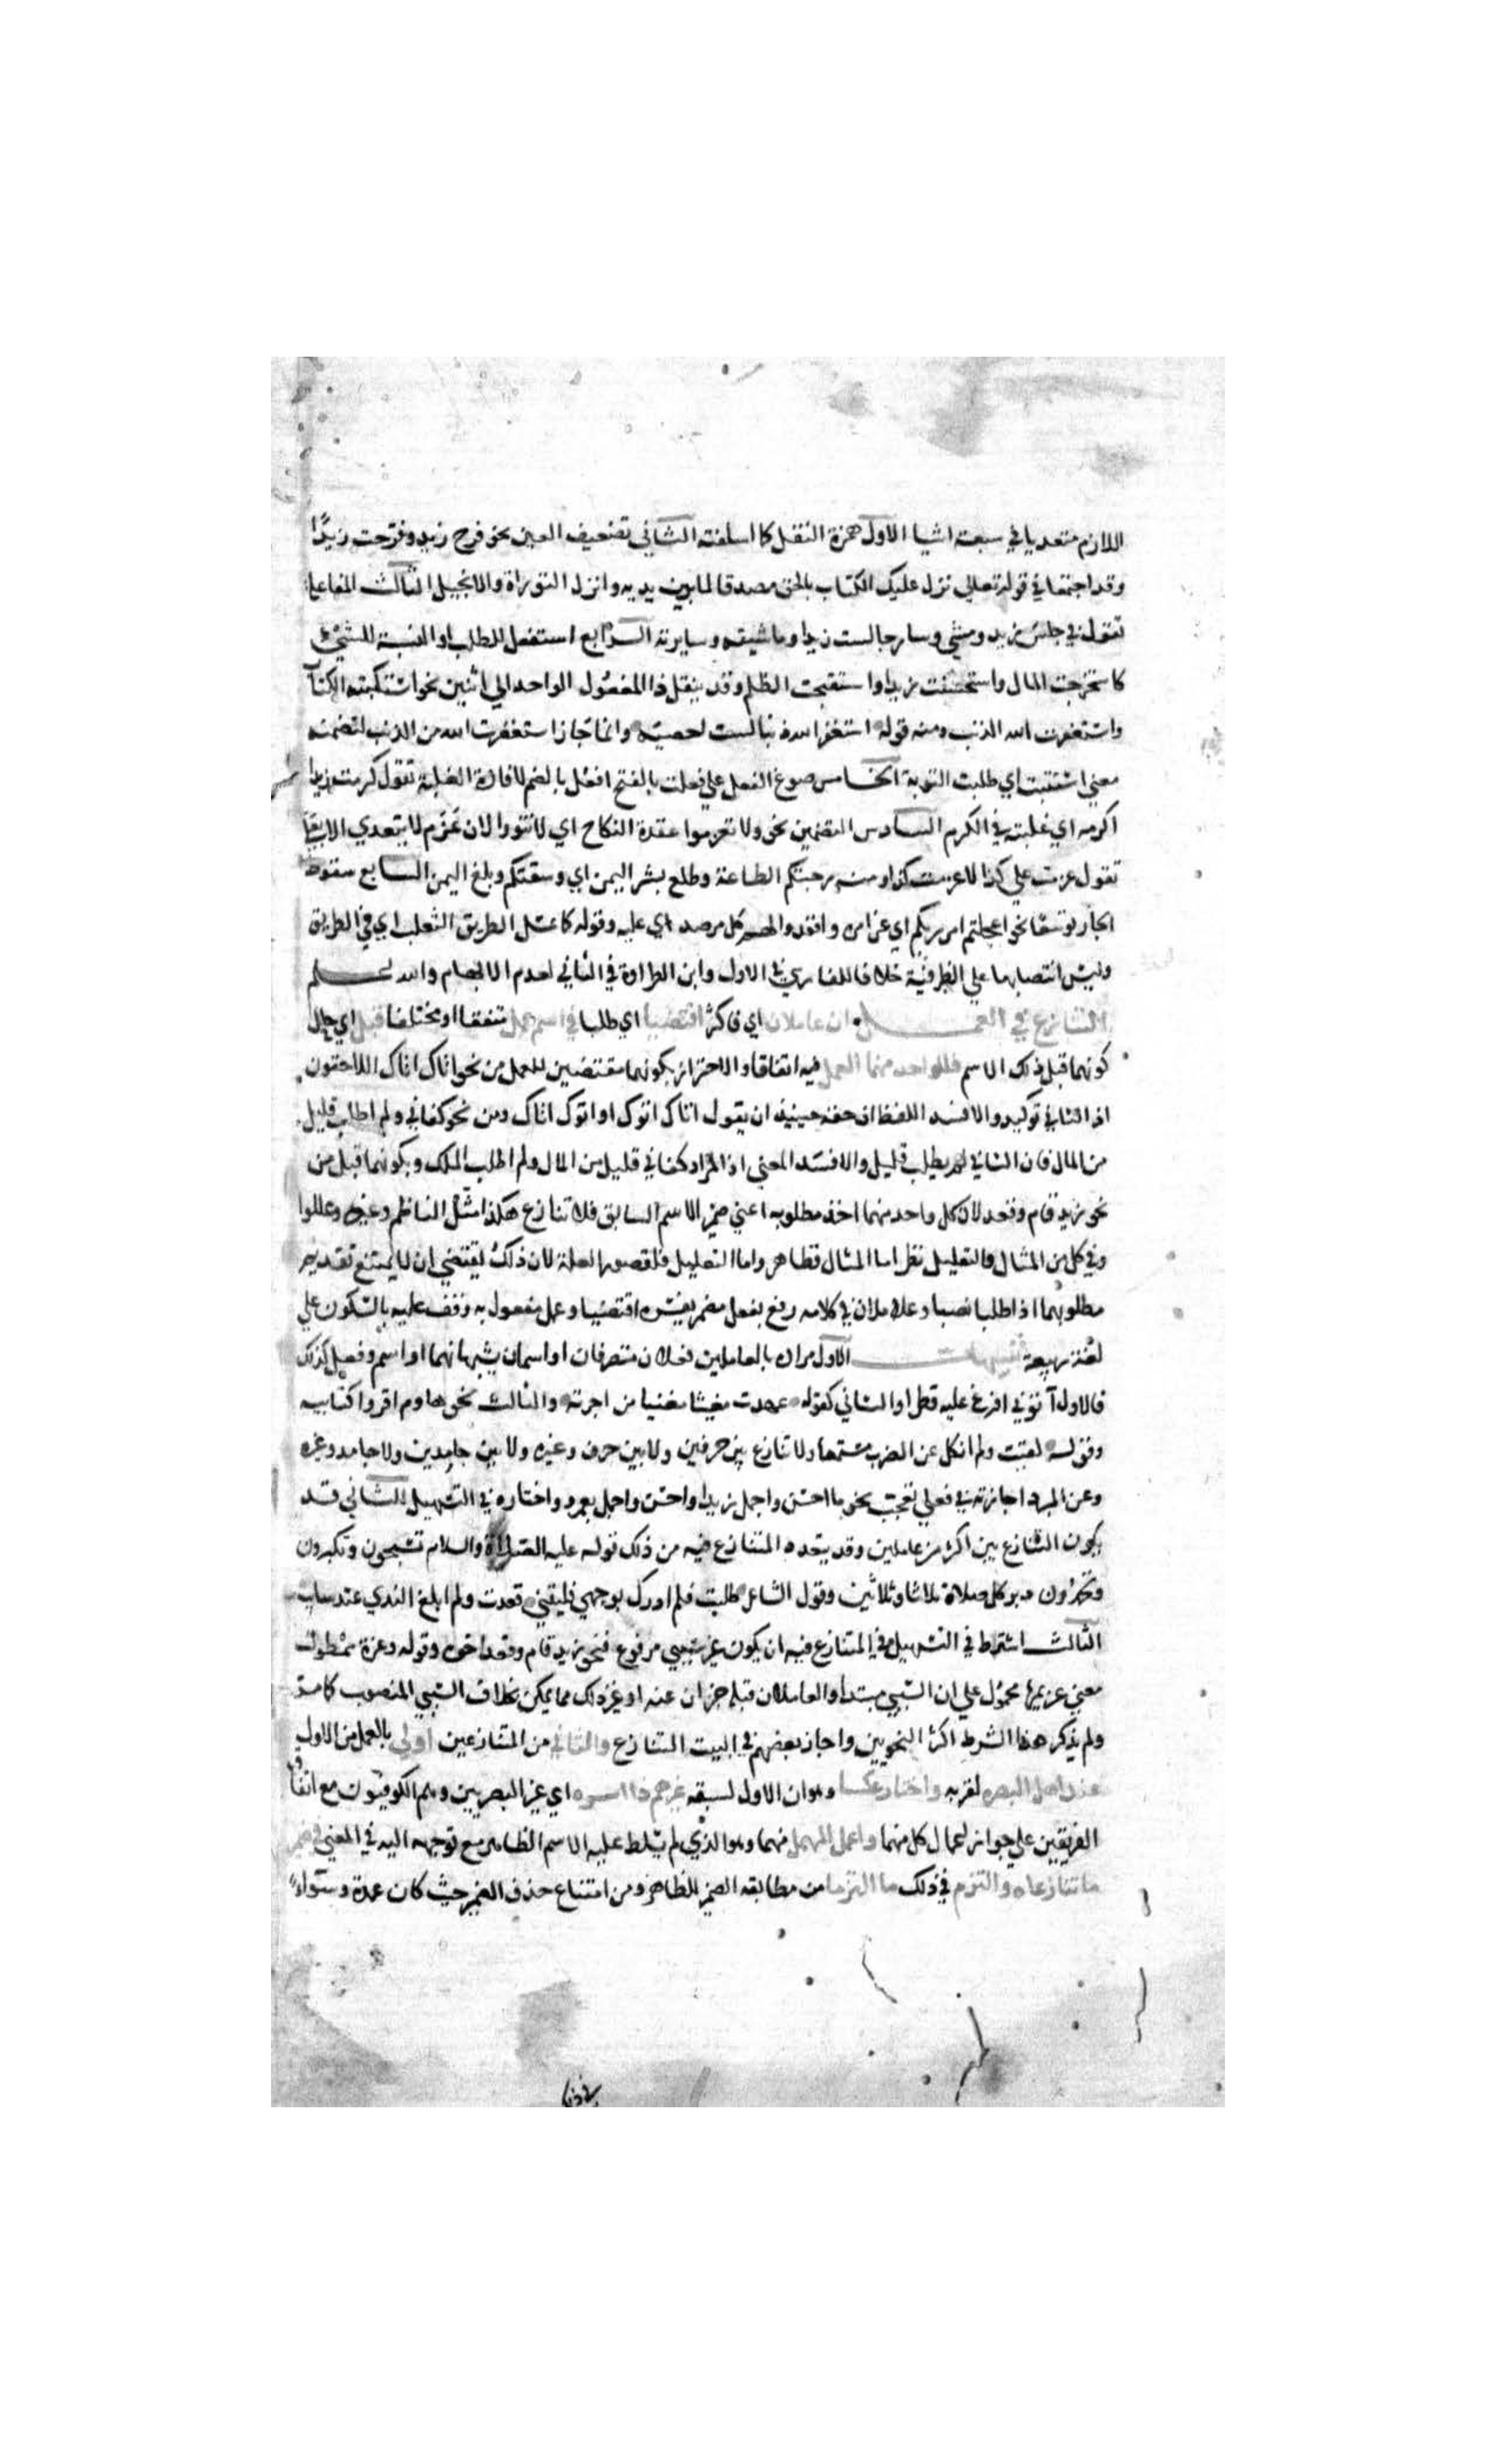 اللازم متعديا في سبعة اشيا الاول همزة النقل كما اسلفته الثاني تضعيف العين نحو فرح زيد وفرحت زيدًا
وقد اجتمعا في قوله تعالي نزل عليك الكتاب بالحق مصدقا لما بين يديه وانزل التوراة والانجيل الثالث المفاعلة
تقول في جلس زيد ومشي وسار جالست زيدا وماشيته وسايرته الرابع استفعل للطلب او النسبة للشيء
كاستخرجت المال واستحسنت زيدا واستقبحت الظلم وقد ينقل ذا المفعول الواحد الي اثنين نحو استكتبته الكتاب
واستغفرت الله الذنب ومنه قوله استغفر الله ذنبا لست محصيه وانما جاز استغفرت الله من الذنب لتضمنه
معني استتبت اي طلبت التوبة الخامس صوغ الفعل علي فعلت بالفتح افعل بالضم لافادة الغلبة تقول كرمت زيدا
اكرمه اي غلبته في الكرم السادس التضمين نحو ولا تعزموا عقدة النكاح اي لا تنووا لان عزم لا يتعدي الا بعلي
تقول عزمت علي كذا لا عزمت كذا ومنه رحبتكم الطاعة وطلع بشر اليمن اي وسعتكم وبلغ اليمن السابع سقوط
الجار توسعًا نحو اعجلتم امر ربكم اي عن امره واقعدوا لهم كل مرصد اي عليه وقوله كما عسل الطريق الثعلب اي في الطريق
وليس انتصابهما علي الظرفية خلافا للفارسي في الاول وابن الطراوة في الثاني لعدم الابهام والله اعلم
التنازع في العمل ان عاملان اي فاكثر اقتضيا اي طلبا في اسم عمل متفقا او مختلفا قبل اي حال
كونهما قبل ذلك الاسم فللواحد منهما العمل فيه اتفاقا والاحتراز بكونهما مقتضيين للعمل من نحو اتاك اتاك اللاحقون
اذ الثاني توكيد والا فسد اللفظ اذ حقه حينئذ ان يقول اتاك اتوك او اتوك اتاك ومن نحو كفاني ولم اطلب قليل
من المال فان الثاني لم يطلب قليل والا فسد المعني اذ المراد كفاني قليل من المال ولم اطلب الملك وبكونهما قبل من
نحو زيد قام وقعد لان كل واحد منهما اخذ مطلوبه اعني ضمير الاسم السابق فلا تنازع هكذا مثل الناظم وغيره وعللوا
وفي كل من المثال والتعليل نظر اما المثال فظاهر واما التعليل فلقصور العلة لان ذلك يقتضي ان لا يمتنع تقديم
مطلوبهما اذا طلبا نصبا وعاملان في كلامه رفع بفعل مضمر يفسره اقتضيا وعمل مفعول به وقف عليه بالسكون علي
لغة ربيعة تنبيهات الاول مراده بالعاملين فعلان متصرفان او اسمان يشبهانهما او اسم وفعل كذلك
فالاول آتوني افرغ عليه قطرا والثاني كقوله عهدت مغيثا مغنيا من اجرته والثالث نحو هاوم اقروا كتابيه
وقوله لقيت ولم انكل عن الضرب مسمعا ولا تنازع بين حرفين ولا بين حرف وغيره ولا بين جامدين ولا جامد وغيره
وعن المبرد اجازته في فعلي تعجب نحو ما احسن واجمل زيدا واحسن واجمل بعمرو واختاره في التسهيل الثاني قد
يكون التنازع بين اكثر من عاملين وقد يتعدد المتنازع فيه من ذلك قوله عليه الصلاة والسلام تسبحون وتكبرون
وتحمدون دبر كل صلاة ثلاثا وثلاثين وقول الشاعر طلبت فلم ادرك بوجهي فليتني قعدت ولم ابلغ الندي عند سايب
الثالث اشترط في التسهيل في المتنازع فيه ان يكون غير سببي مرفوع فنحو زيد قام وقعد اخوه وقوله وعزة ممطول
معني غريمها محمول علي ان السببي مبتدا والعاملان قبله خبران عنه او غير ذلك مما يمكن بخلاف السببي المنصوب كما مر
ولم يذكر هذا الشرط اكثر النحويين واجاز بعضهم في البيت التنازع والثاني من المتنازعين اولى بالعمل من الاول
عند اهل البصره لقربه واختار عكسا وهو ان الاول لسبقه غيرهم ذا اسره اي غير البصريين وهم الكوفيون مع اتفاق
الفريقين علي جواز اعمال كل منهما واعمل المهمل منهما وهو الذي لم يتسلط عليه الاسم الظاهر مع توجهه اليه في المعني في ضمير
ما تنازعاه والتزم في ذلك ما التزما من مطابقة الضمير للظاهر ومن امتناع حذف الضمير حيث كان عمدة وسواءً